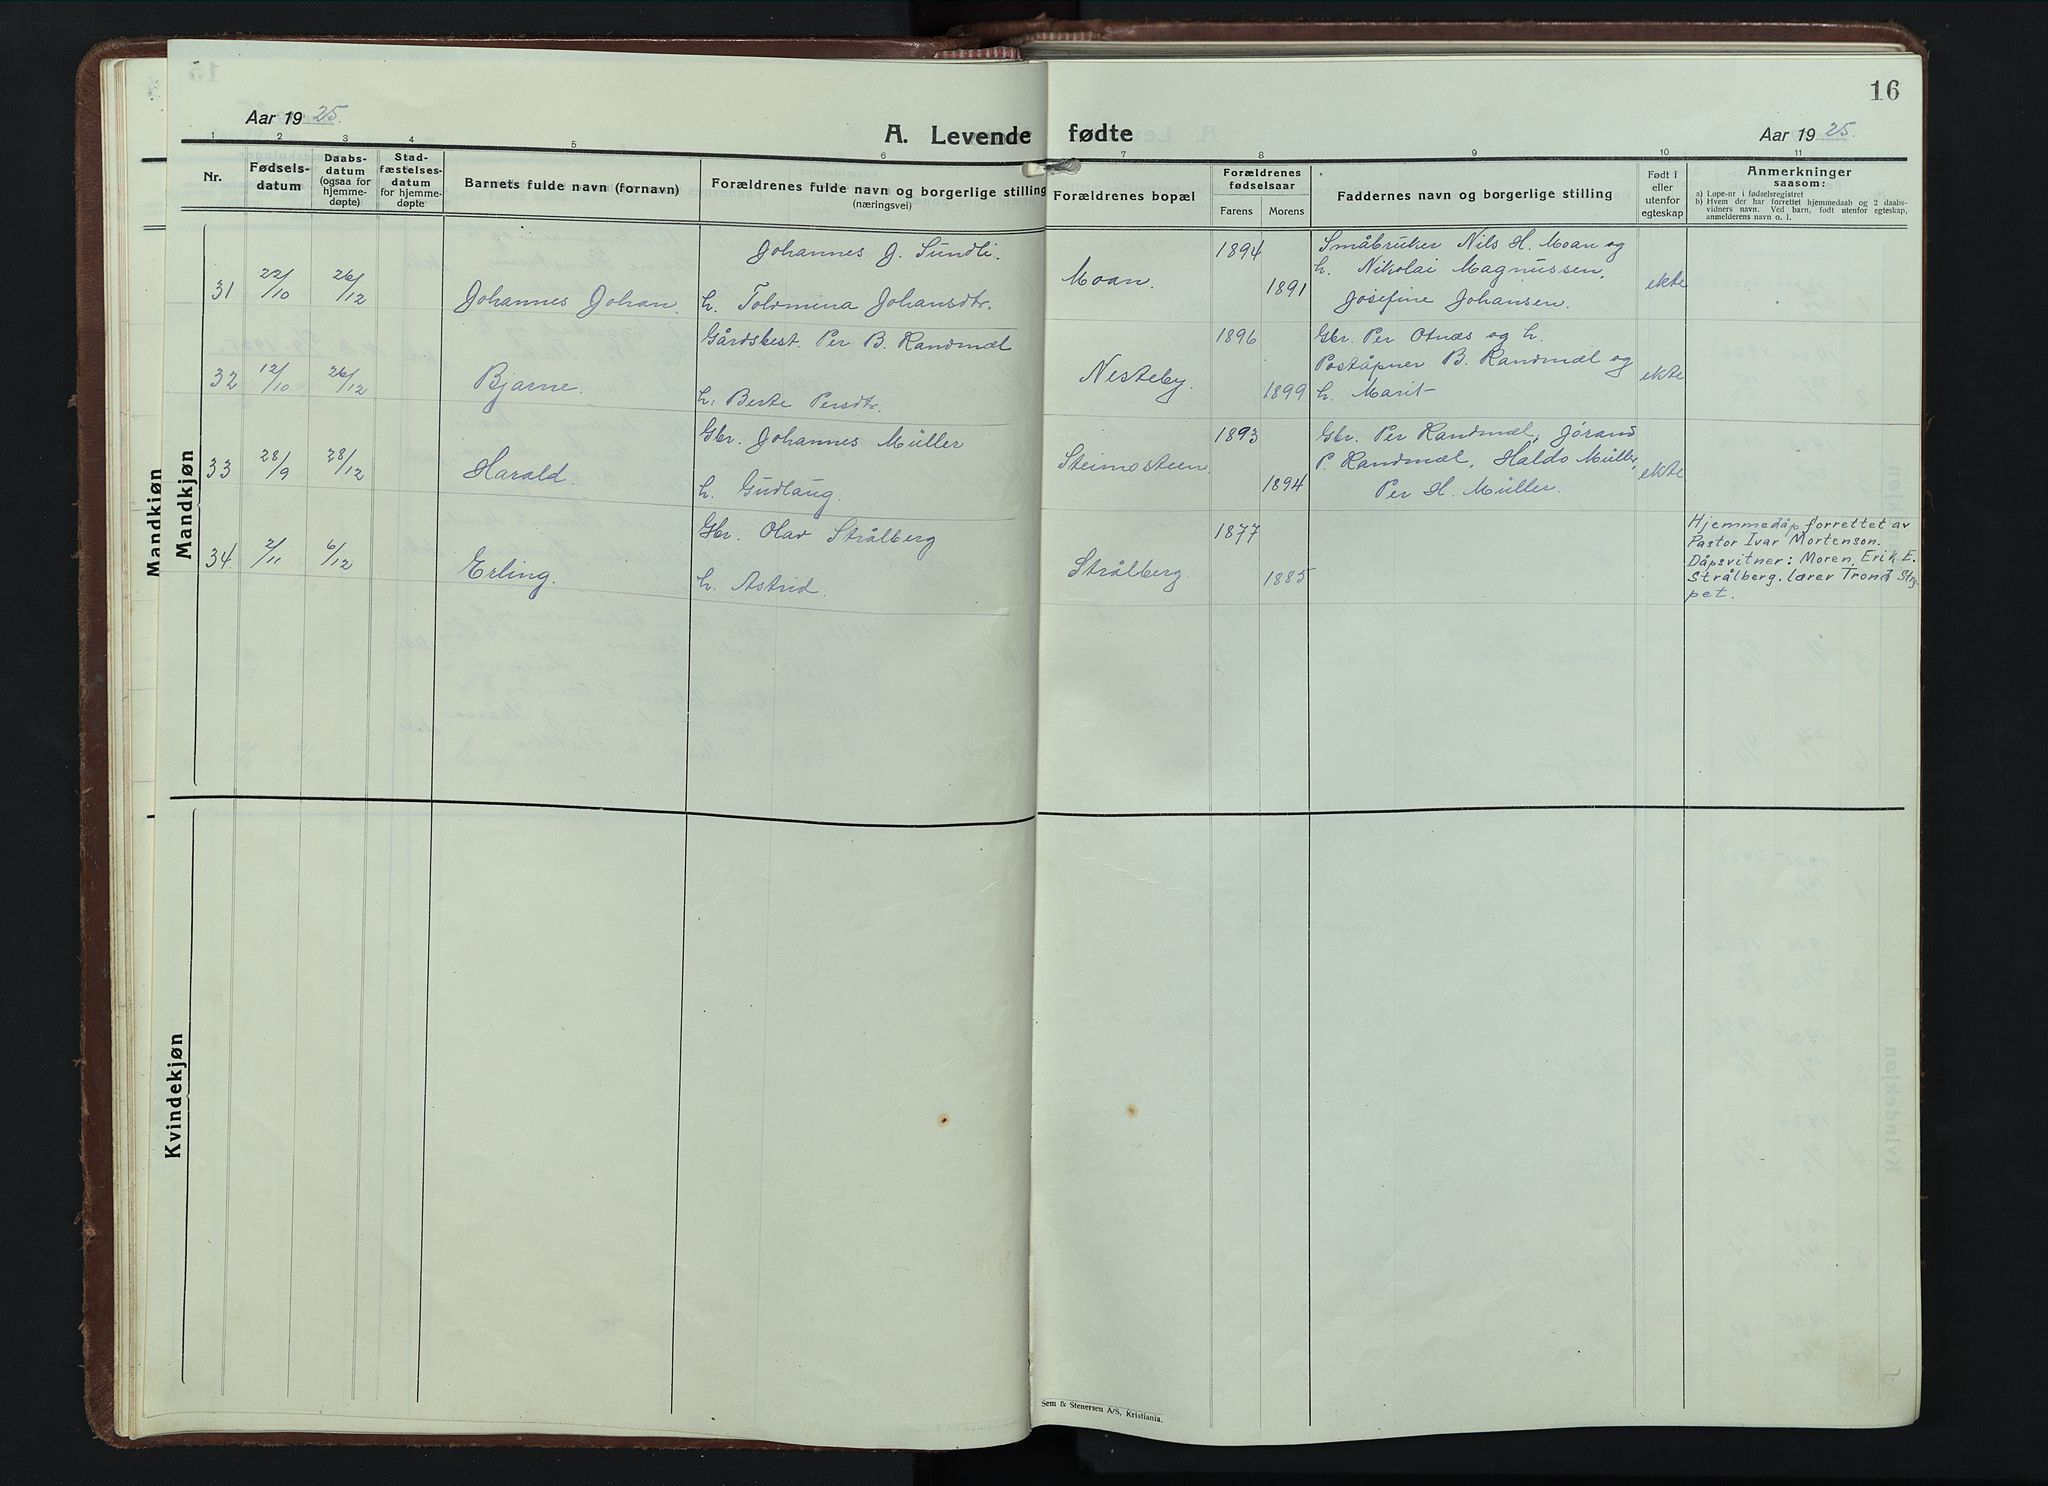 16
Aar 1925.
A. Levende fødte
Aar 1925.
1 2 3 4 5 6 7 8 9 10 11
Nr.
Fødsels-
datum
Daabs-
datum
(ogsaa for
hjemme-
døpte)
Stad-
fæstelses-
datum
for hjemme-
døpte
Barnets fulde navn (fornavn)
Forældrenes fulde navn og borgerlige stilling
(næringsvei)
Forældrenes bopæl
Forældrenes
fødselsaar
Farens Morens
Faddernes navn og borgerlige stilling
Født i
eller
utenfor
egteskap
Anmerkninger
saasom:
a) Løpe-nr i fødselsregistret
b) Hvem der har forrettet hjemmedaab og 2 daabs-
vidners navn. Ved barn, født utenfor egteskap,
anmelderens navn o. l.
Mandkjøn
Mandkjøn
31 22/10 26/12 Johannes Johan.
Johannes J. Sundli.
h. Tolomina Johansdtr.
Moan. 1894 1891
Småbruker Nils H. Moan og
h. Nikolai Magnussen,
Josefine Johansen.
ekte
32 12/10 26/12 Bjarne.
Gårdsbest. Per B. Randmæl
h: Berte Persdtr.
Nesteby. 1896 1899
Gbr. Per Otnæs og h.
Poståpner B. Randmæl og
h. Marit
ekte
33 28/9 28/12 Harald.
Gbr. Johannes Müller
h. Gudlaug.
Steimosteen. 1893 1894
Gbr. Per Randmæl, Jørand
P. Randmæl, Haldo Müller,
Per H. Müller.
ekte
34. 2/11 6/12 Erling.
Gbr. Olav Strålberg
h. Astrid.
Strålberg. 1877 1885
Hjemmedåp forrettet av
Pastor Ivar Mortenson.
Dåpsvitner: Moren, Erik E.
Strålberg, lærer Trond Stry-
pet.
Kvindekjøn
Sem & Stenersen A/S, Kristiania.